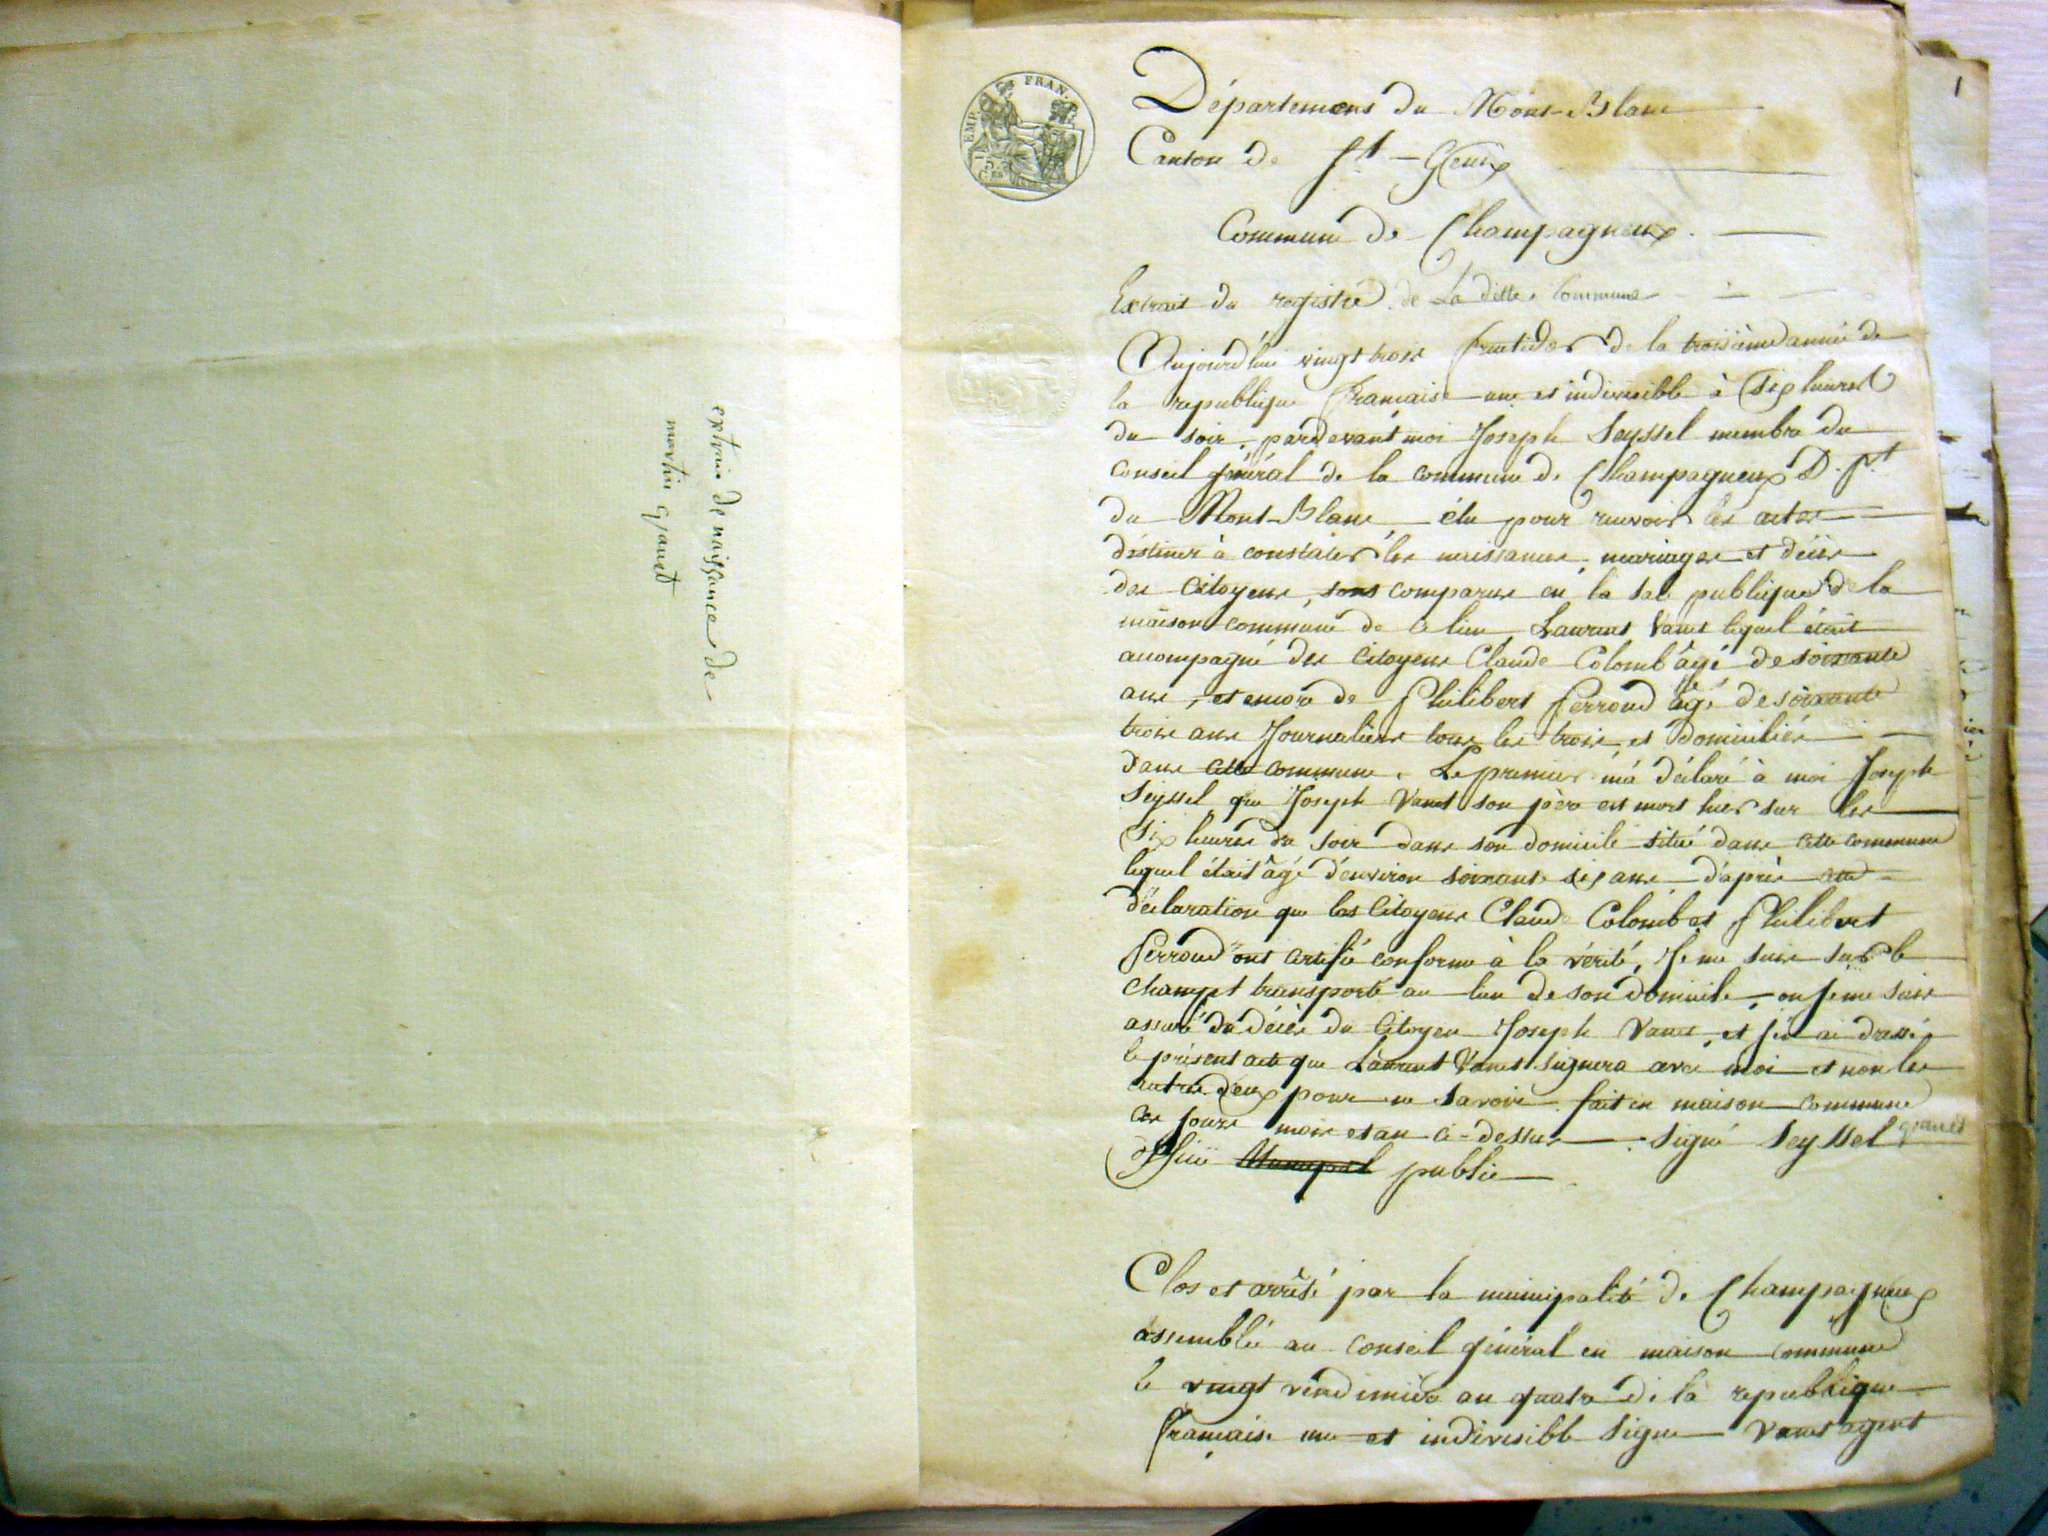 extrai de naissance de
martin granet
EMP. FRAN.
1
Département du Mont-Blanc
Canton de St - Genix
Commune de Champagneux.
Extrait du registre de La ditte Commune
Aujourd'hui vingt trois fructidor de la troisième année de
la republique francaise une et indivisible à six heures
du soir, pardevant moi Joseph Seyssel membre du
conseil général de la commune de Champagneux D.p.t
du Mont-Blanc, élu pour recevoir les actes
destinés à constater les naissances, mariages et décès
des citoyens, sont comparus en la sale publique de la
maison commune de ce lieu Laurent Vanet lequel était
acompagné des citoyens Claude Colomb âgé de soixante
ans, et encore de Philibert Perroud âgé de soixante
trois ans Journaliers tous les trois et domiciliés
dans cette commune. Le premier m'a déclaré à moi Joseph
Seyssel que Joseph Vanet son père est mort hier sur les
six heures du soir dans son domicile situé dans cette commune
lequel était âgé d'environ soixante six ans d'après
déclaration que les citoyens Claude Colomb et Philibert
Perroud ont certifié conforme à la vérité, Je me suis sur le
champt transporté au lieu de son domicile, ou je me suis
assuré du décès du citoyen Joseph Vanet, et j'en ai dressé
le présent acte que Laurent Vanet signera avec moi et non les
autres deux pour ne savoir. fait en maison commune
ces jours mois et an ci-dessus signé Seyssel granet
officié Municipal public
Clos et arrêté par la municipalité de Champagneux
assemblée au conseil général en maison commune
le vingt vendimière an quatre de la republique
francaise une et indivisible signe Vanet agent